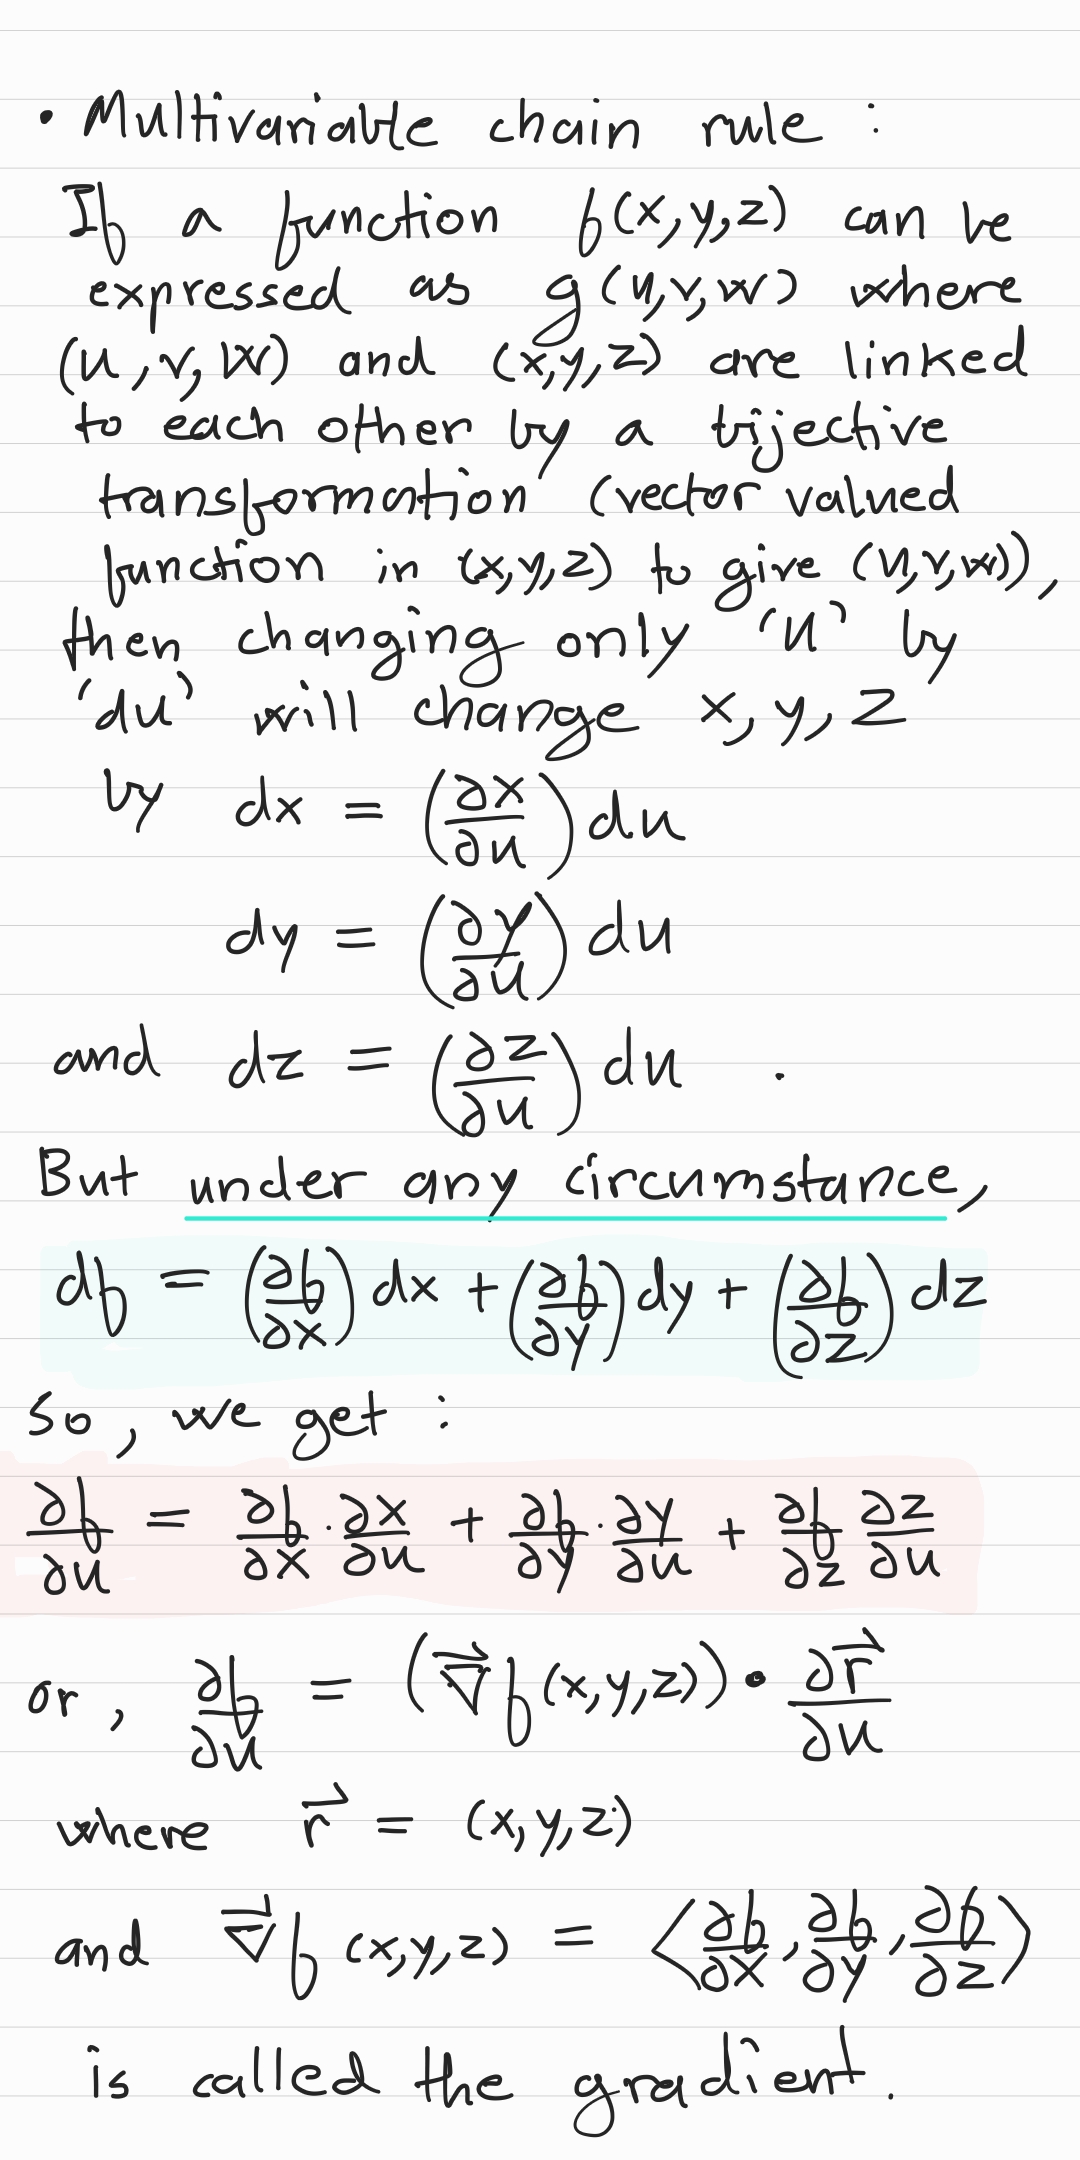 • Multivariable chain rule :
If a function f(x,y,z) can be
expressed as g(u,v,w) where
(u,v,w) and (x,y,z) are linked
to each other by a bijective
transformation (vector valued
function in (x,y,z) to give (u,v,w)),
then changing only 'u' by
'du' will change x, y, z
by dx = (∂x/∂u) du
dy = (∂y/∂u) du
and dz = (∂z/∂u) du .
But under any circumstance,
df = (∂f/∂x) dx + (∂f/∂y) dy + (∂f/∂z) dz
So, we get :
∂f/∂u = ∂f/∂x · ∂x/∂u + ∂f/∂y · ∂y/∂u + ∂f/∂z ∂z/∂u
or, ∂f/∂u = (∇⃗f(x,y,z)) • ∂r⃗/∂u
where r⃗ = (x,y,z)
and ∇⃗f (x,y,z) = ⟨∂f/∂x, ∂f/∂y, ∂f/∂z⟩
is called the gradient.